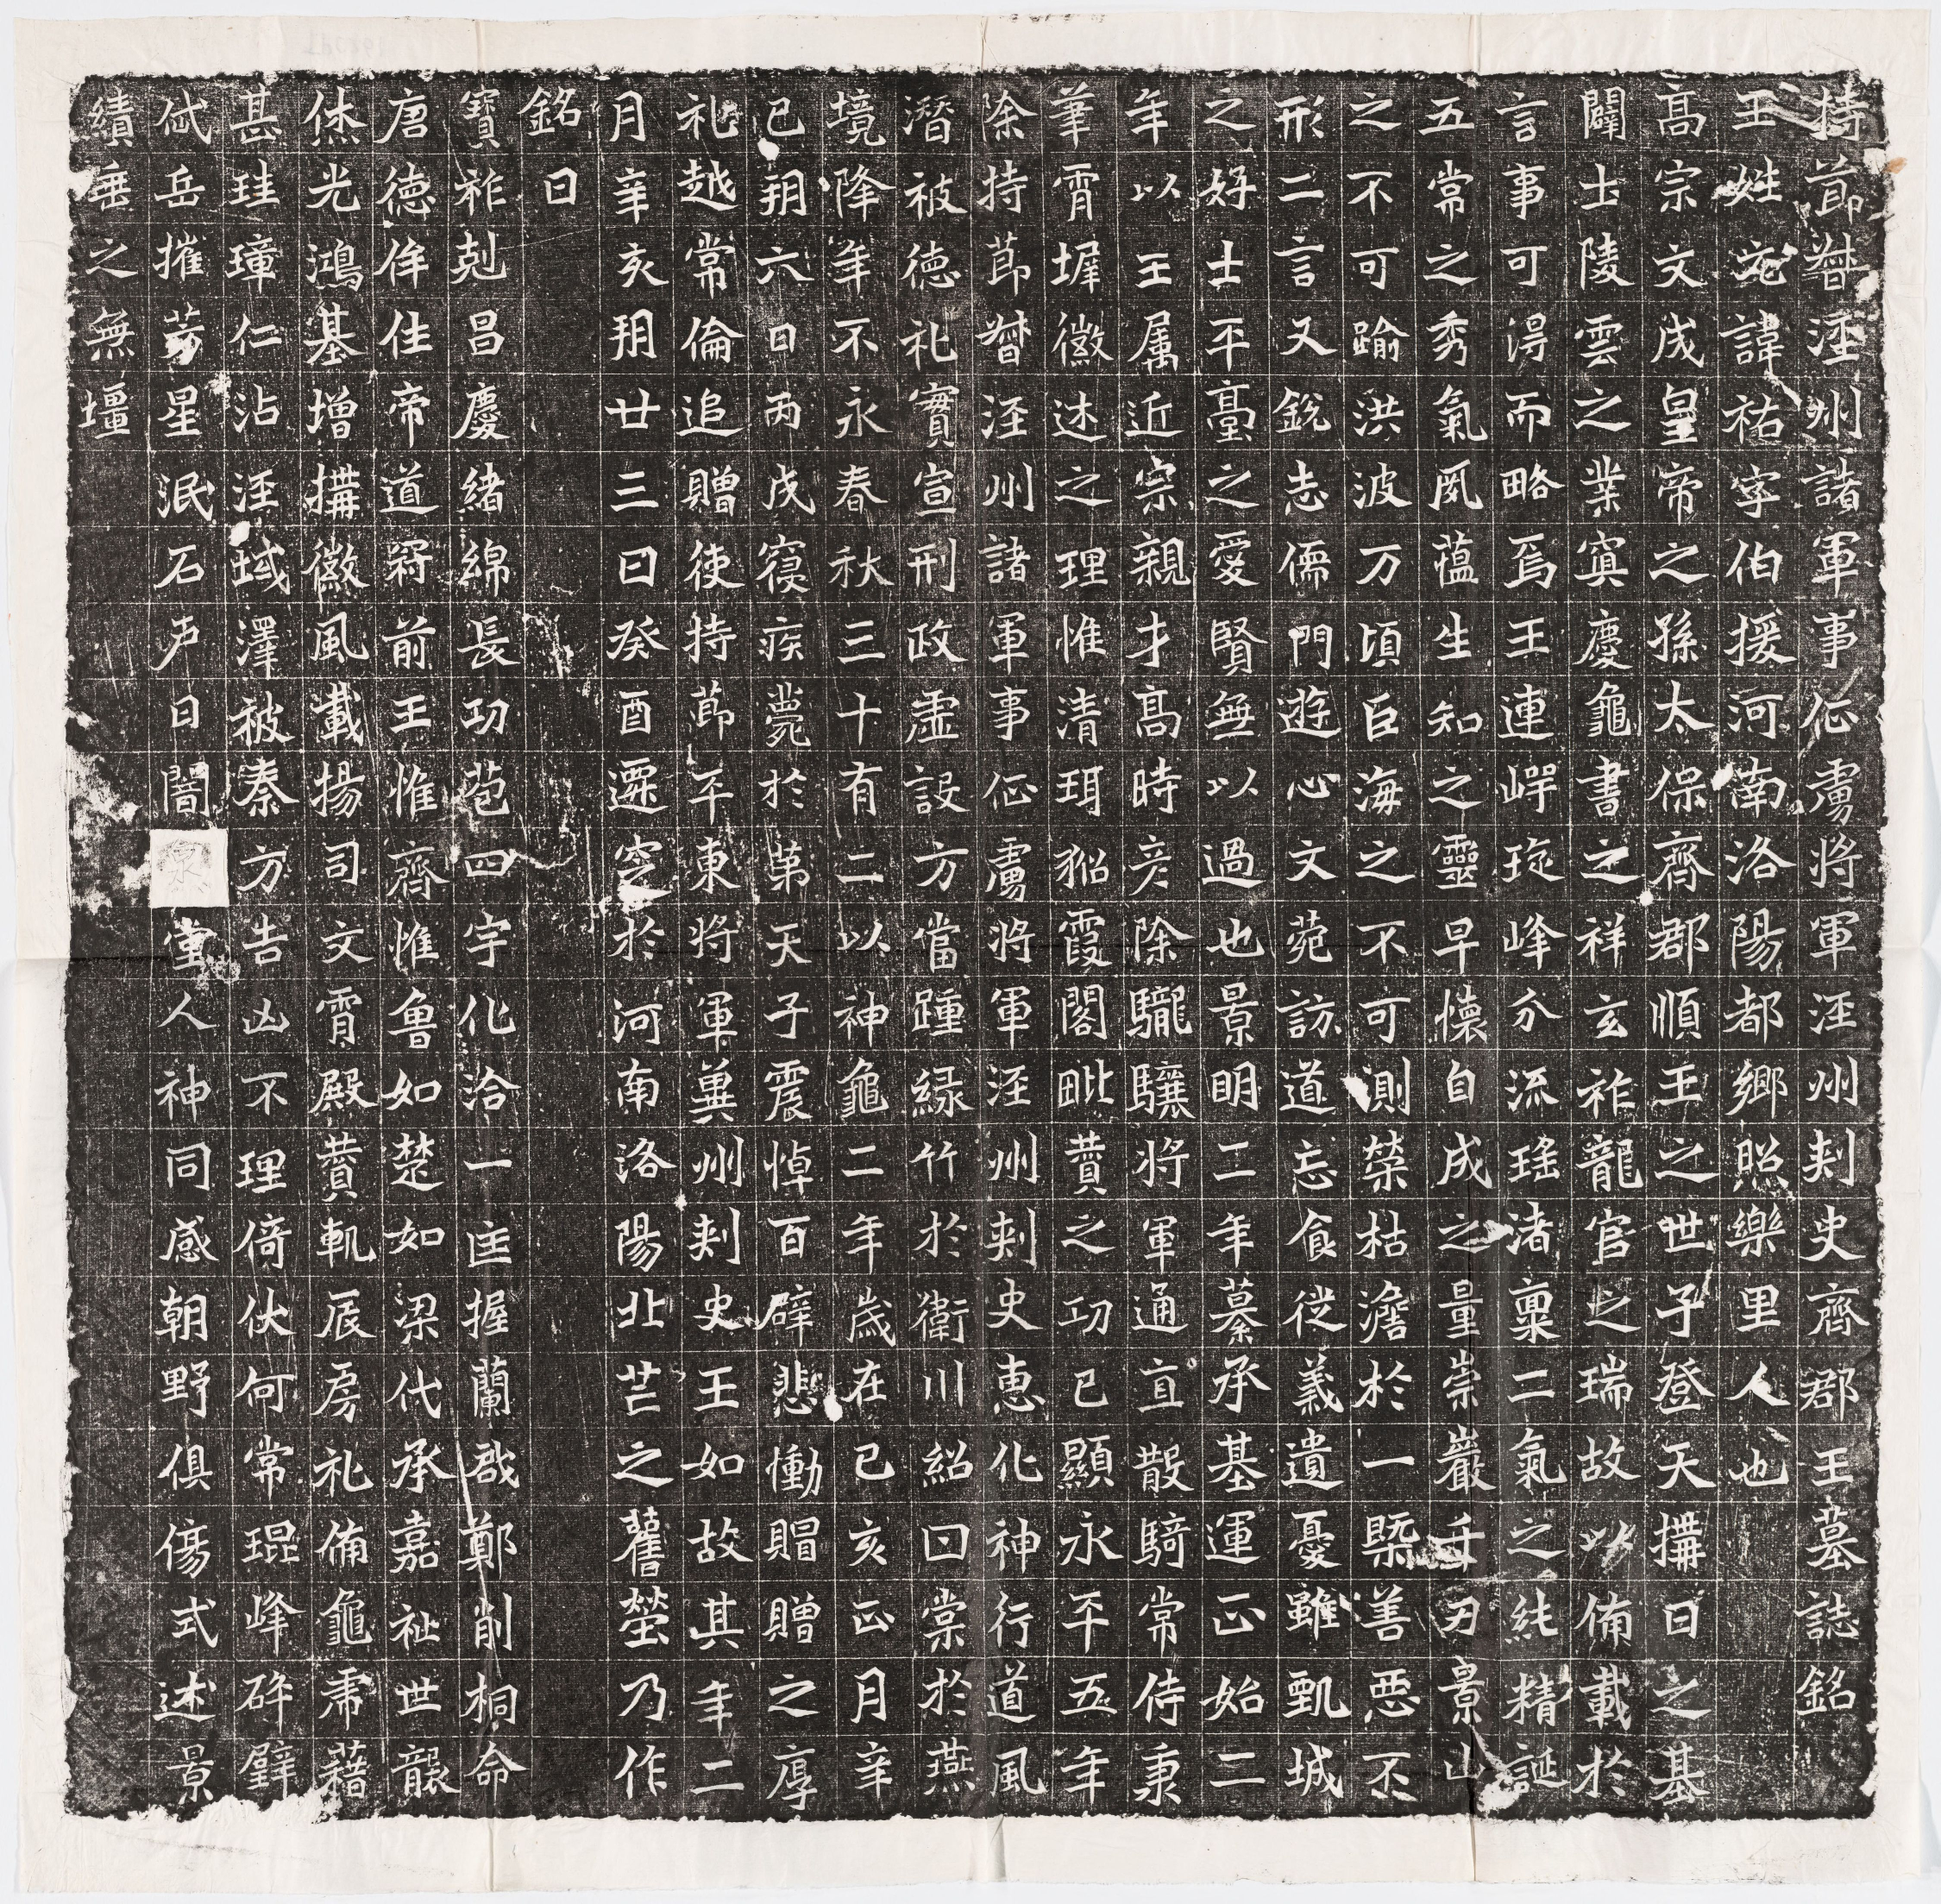 持節督涇州諸軍事征虜將軍涇州刺史齊郡王墓誌銘
王姓元諱祐字伯援河南洛陽都鄉照樂里人也
高宗文成皇帝之孫太保齊郡順王之世子登天構日之基
闢土陵雲之業寅慶龜書之祥玄祚龍官之瑞故以備載於
言事可得而略焉王連崿琁峰分流瑤渚稟二氣之純精誕
五常之秀氣夙蘊生知之靈早懷自成之量崇巖千刃景山
之不可踰洪波万頃巨海之不可測榮枯澹於一槩善惡不
形二言又銳志儒門遊心文苑訪道忘食從義遺憂雖甄城
之好士平臺之愛賢無以過也景明二年纂承基運正始二
年以王属近宗親才高時彦除驪驤將軍通直散騎常侍東
華霄墀徽述之理惟清珥貂霞閣毗贊之功已顯永平五年
除持節督涇州諸軍事征虜將軍涇州刺史惠化神行道風
潛被德礼實宣刑政虛設方當踵緑竹於衛川紹曰棠於燕
境降年不永春秋三十有二以神龜二年歲在己亥正月辛
巳朔六日丙戌寑疾薨於第天子震悼百辟悲慟賵贈之厚
礼越常倫追贈使持節平東將軍冀州刺史王如故其年二
月辛亥朔廿三日癸酉遷窆於河南洛陽北芒之舊塋乃作
銘曰
寶祚剋昌慶緒綿長功苞四宇化洽一匡握蘭啟鄭削桐命
唐德侔往帝道冠前王惟齊惟魯如楚如梁代承嘉祉世襲
休光鴻基增構徽風載揚司文霄殿贊軌辰房礼備龜帛藉
甚珪璋仁沾涇域澤被秦方告凶不理倚伏何常琨峰碎璧
岱岳摧芳星泯石声日闇泉堂人神同感朝野俱傷式述景
績垂之無壃